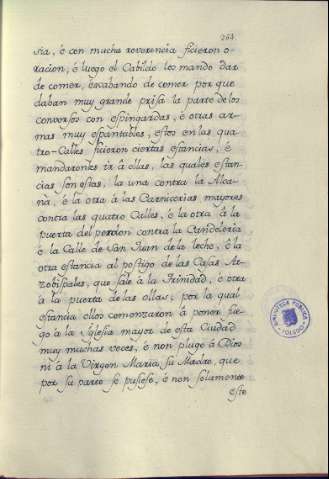 263
sia, è con mucha reverencia ficieron o-
racion, è luego el Cabildo les mando dar
de comer, è acabando de comer por que
daban muy grande prisa la parte de los
conversos con espingardas, è otras ar-
mas muy espantables, estos en las qua-
tro-Calles ficieron ciertas estancias, è
mandaronles ir à ellas, las quales estan-
cias son estas, la una contra la Alca-
nà, è la otra à las Carnicerias mayores
contra las quatro Calles, è la otra à la
puerta del perdon contra la Candeleria
è la Calle de San Juan de la leche, è la
otra estancia al postigo de las Casas Ar-
zobispales, que sale à la Trinidad, è otra
à la puerta de las ollas; por la qual
estancia ellos comenzaron à poner fue-
go à la Iglesia mayor de esta Ciudad
muy muchas veces, è non plugo à Dios
ni à la Virgen Maria su Madre, que
por su parte se pusiese, è non solamente
este
BIBLIOTECA PUBLICA
TOLEDO